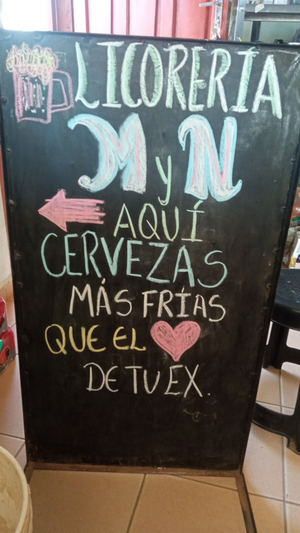 LICORERÍA
M y N
AQUÍ
CERVEZAS
MÁS FRÍAS
QUE EL
DE TU EX.